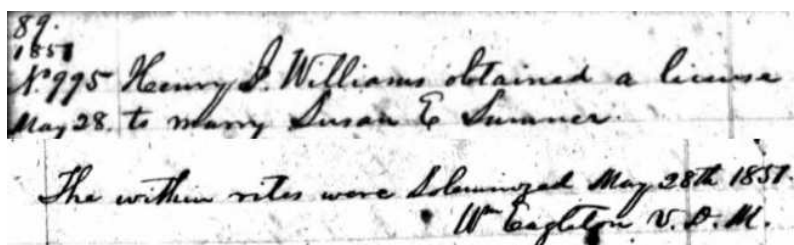 89.
1851
No 995 Henry J. Williams obtained a license
May 28. to marry Susan E Sumner.
The within rites were Solemnized May 28th 1851.
Wm Eagleton V. D. M.